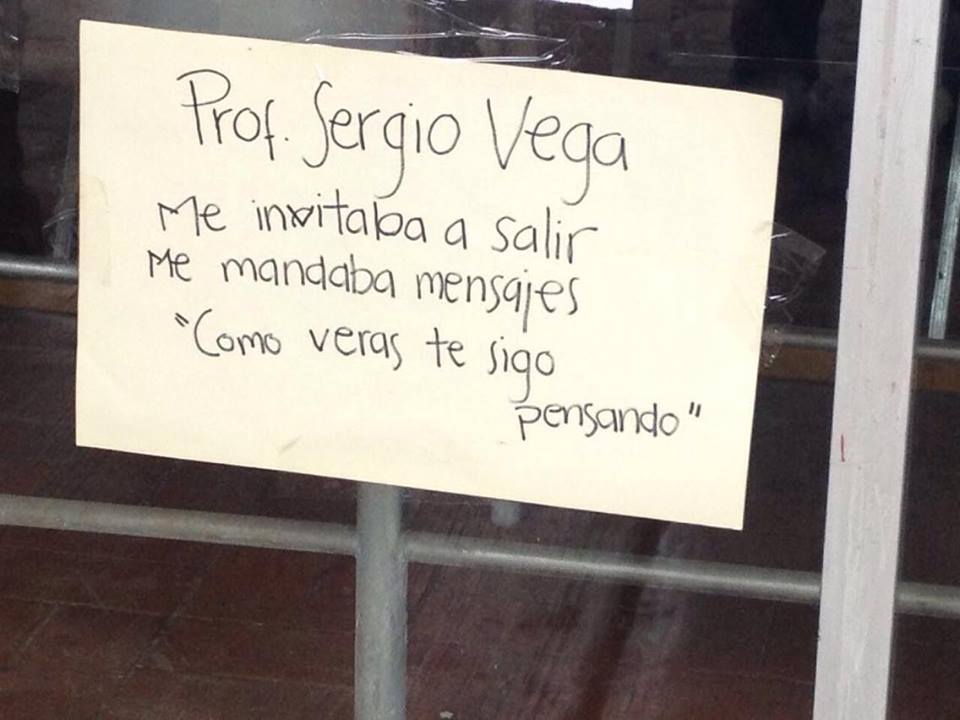 Prof. Sergio Vega
Me invitaba a salir
Me mandaba mensajes
"Como veras te sigo
pensando"